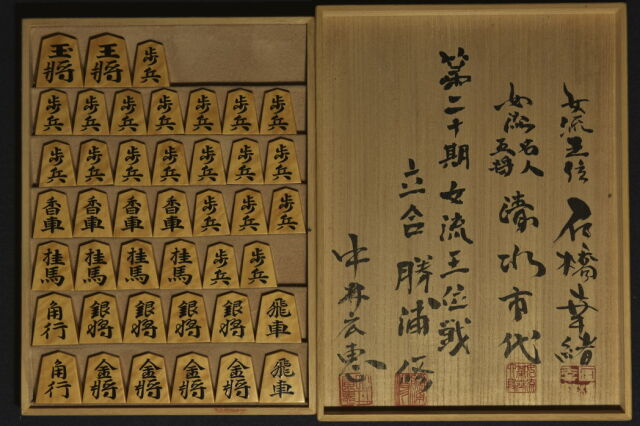 玉将 王将 歩兵
歩兵 歩兵 歩兵 歩兵 歩兵 歩兵 歩兵
歩兵 歩兵 歩兵 歩兵 歩兵 歩兵 歩兵
香車 香車 香車 香車 歩兵 歩兵 歩兵
桂馬 桂馬 桂馬 桂馬 歩兵 歩兵
角行 銀将 銀将 銀将 銀将 飛車
角行 金将 金将 金将 金将 飛車
女流王位 石橋幸緒
女流名人王将 清水市代
第二十期女流王位戦
立合 勝浦修
中井広恵